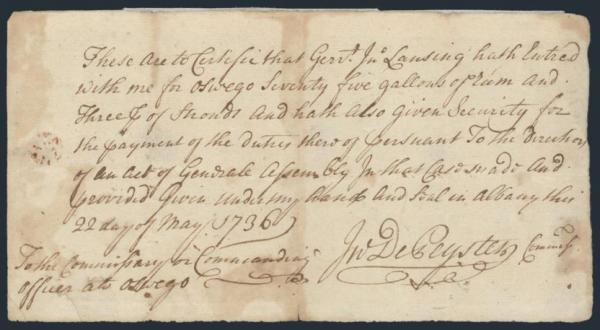 These Are to Certifie that Gerrt. Jno Lansing hath Entred
with me for Oswego Seventy five gallons of Rum And
Three ps of Strouds And hath Also Given Security for
the payment of the duties there of persuant To the direction
of an Act of Generale Assembly In that Case made And
provided Given under my hand And Seal in Albany this
22 day of May 1736
Jno De Peyster Commisr.
To the Commissary or Commanding
officer att Oswego